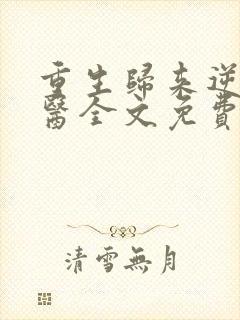 重生歸來逆
醫全文免費
清雪無月